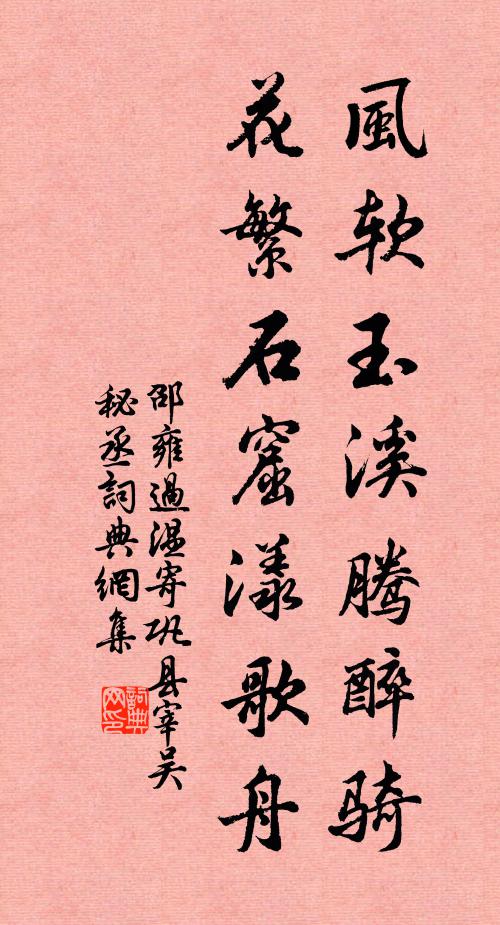 風软玉溪腾醉骑
花繁石窟漾歌舟
邵雍過温寄巩县宰吴
秘丞詞典網集
詞典网印